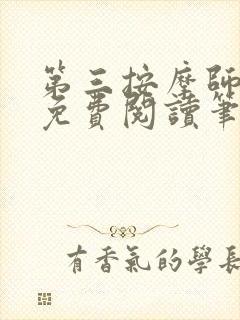 第三按摩師
免費閱讀筆
有香氣的學長